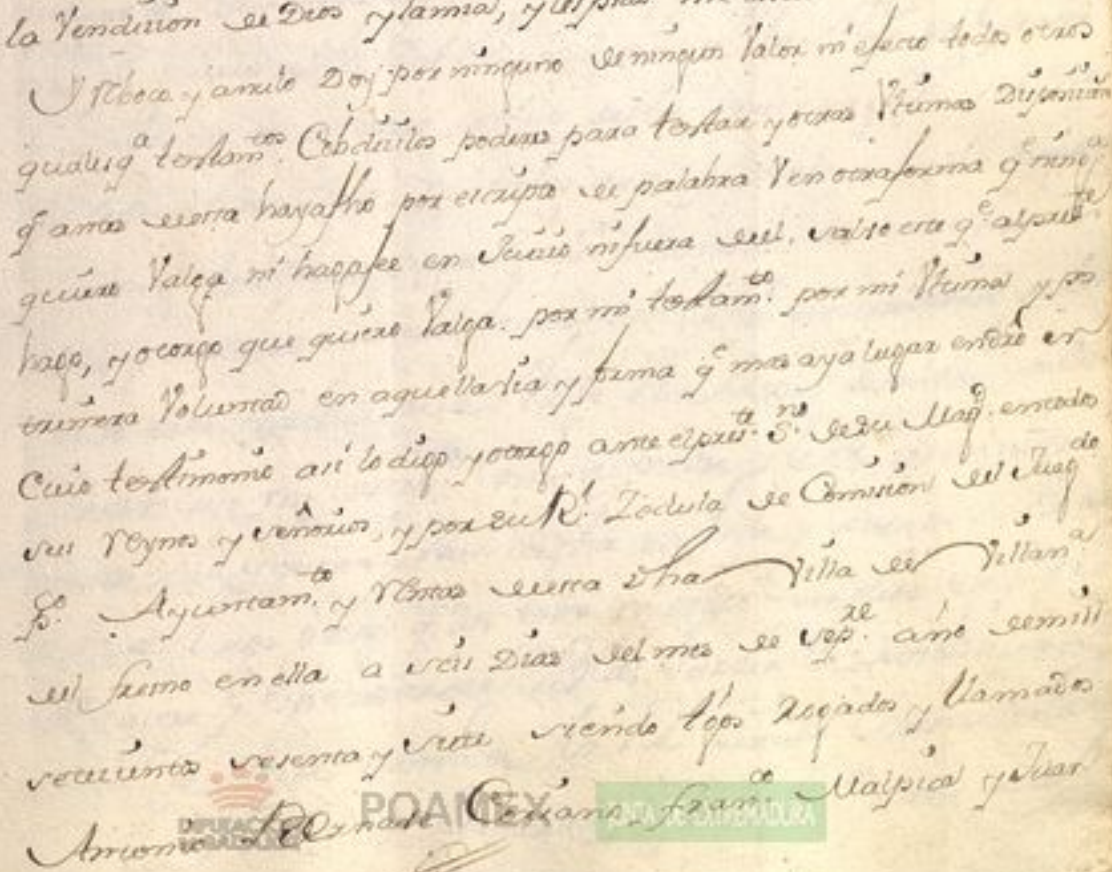 la Vendicion de Dios y la mia,
Y Reboco y anulo Doy por ninguno de ningun Valor ni efecto todos otros
qualesq.a testam.tos Cobdicilos poderes para testar y otras Vltimas Disposicion
q.e antes de esta haya fho por escripto de palabra V en otra forma q.e ning.a
quiero Valga ni haga fee en Juicio ni fuera de el, salvo este q.e al pres.te
hago, y otorgo que quiero Valga por mi testam.to por mi Vltima y pos
trimera Voluntad en aquella via y forma q.e mas aya lugar en dro en
Cuio testimonio asi lo digo y otorgo ante el pres.te S.no de Su Mag.d en todos
sus Reynos y señorios, y por su R.l Zedula de Comision del Juzg.do
Ayuntam.to y Rentas de esta dha Villa de Villan.a
del fresno en ella a seis Dias del mes de sep.re año de mill
setecientos sesenta y siete siendo tgos Rogados y llamados
Antonio Soriano, fran.co Malpica y Juan
DIPUTACIÓN DE BADAJOZ POAMEX JUNTA DE EXTREMADURA